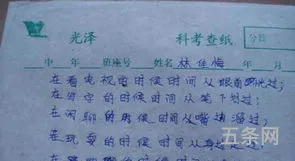 光泽 科考查纸
分数
中 年 班座号 姓名 林佳梅 年 月
在看电视的时候时间从眼前晃过；
在写字的时候时间从笔下划过；
在闲聊的时候时间从嘴边溜过；
在玩耍的时候时间从身
五条网
(www.